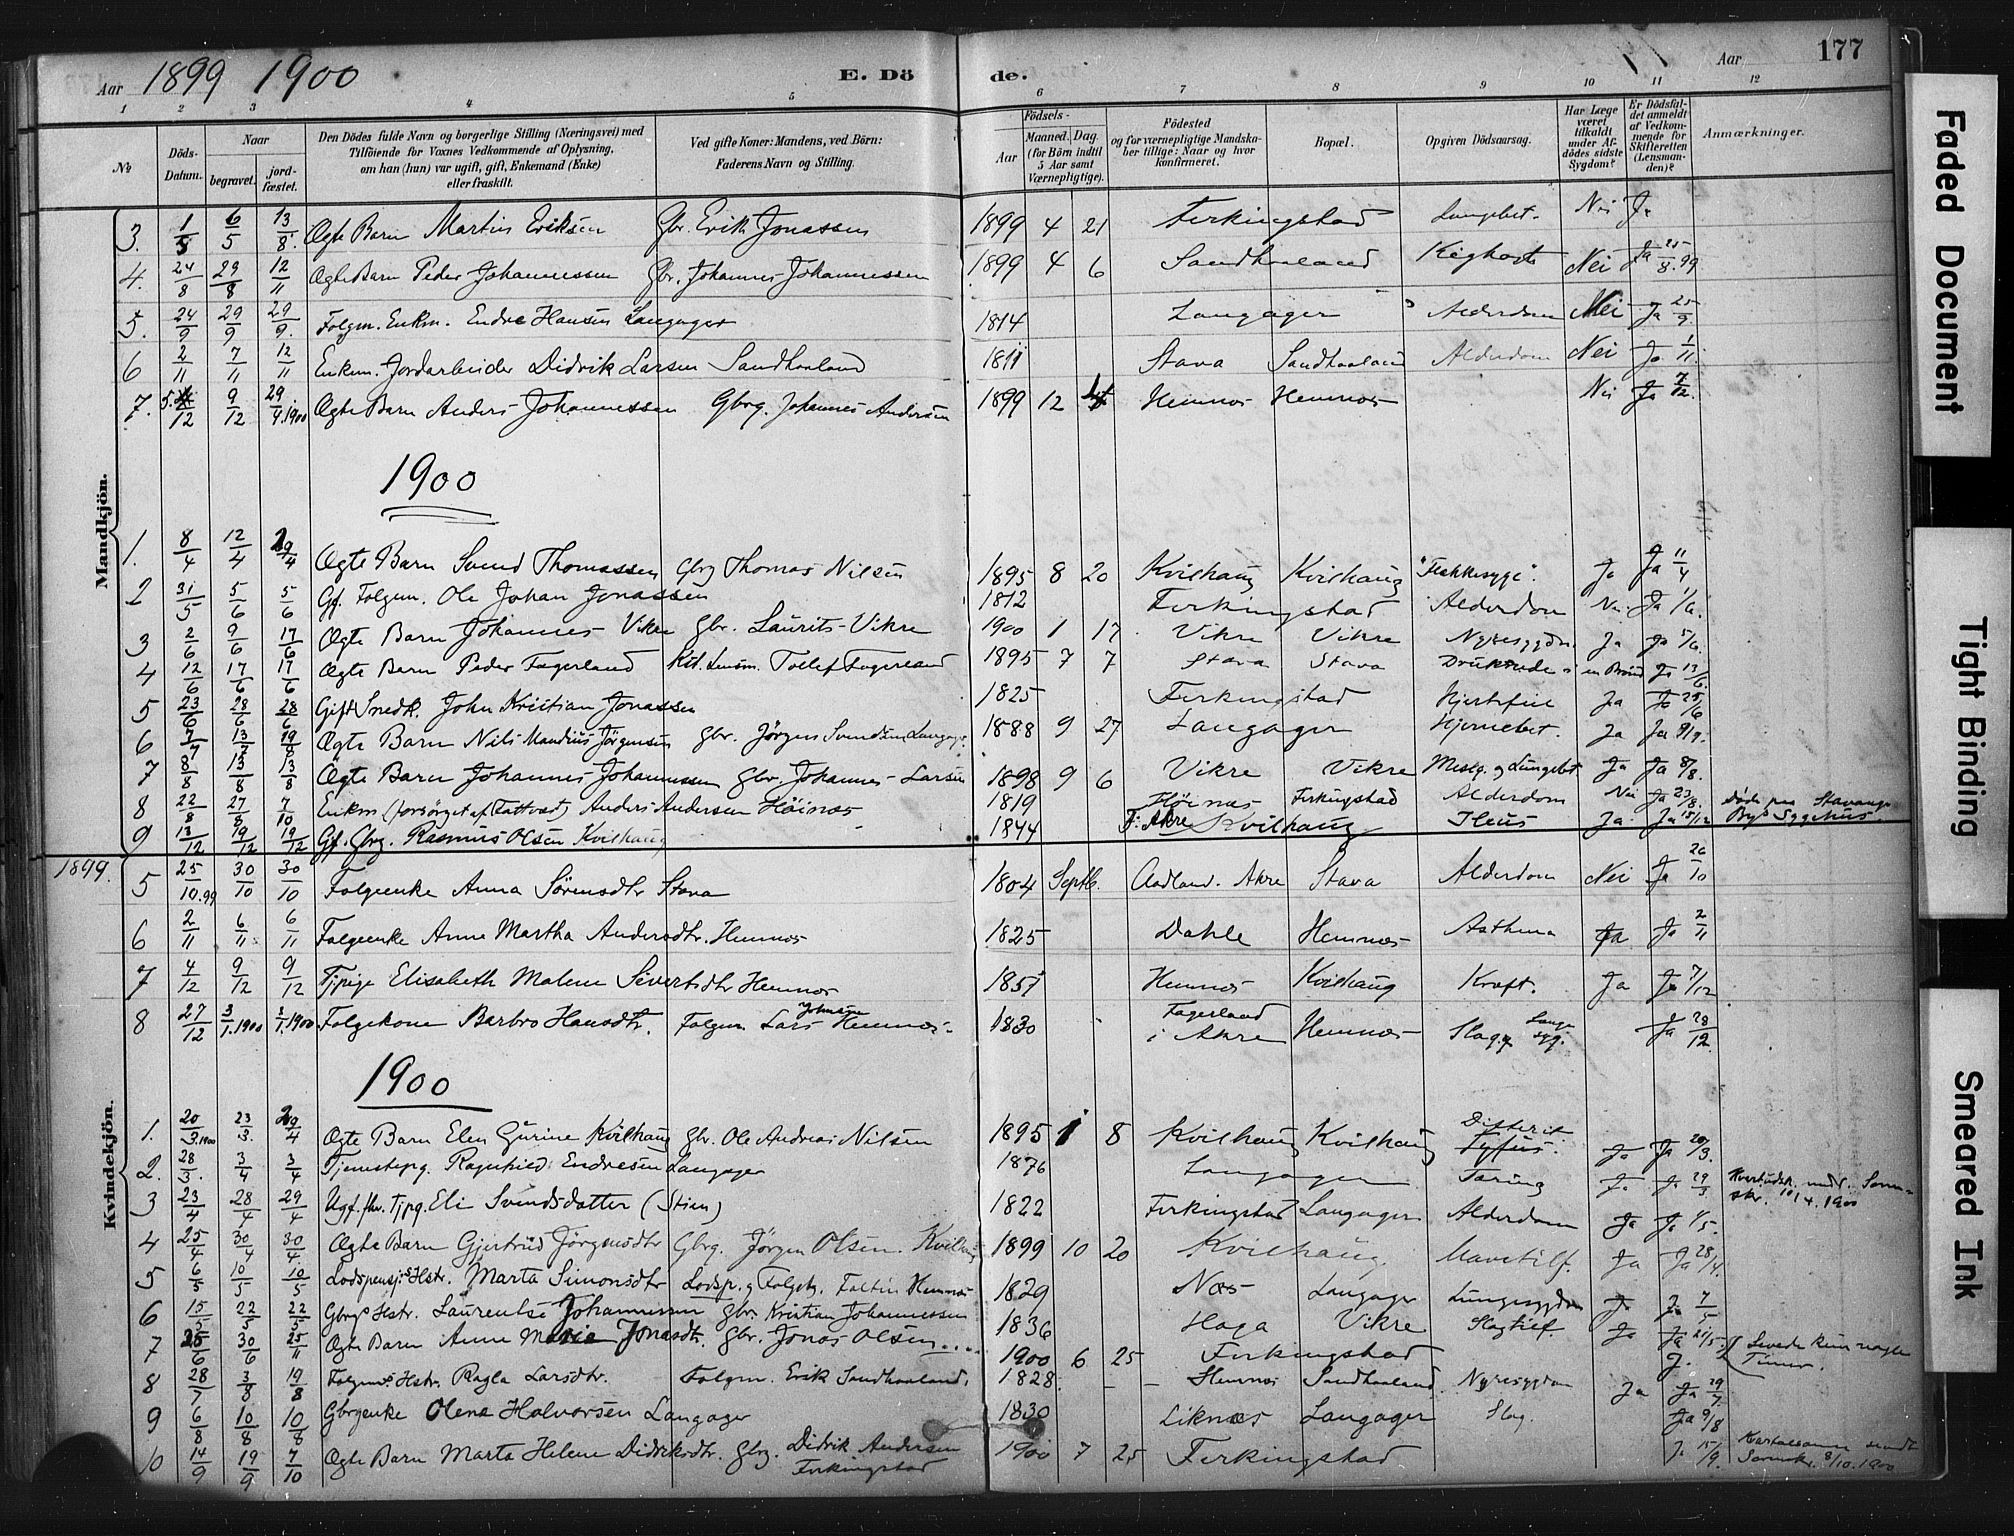 Aar 1899 1900 E. Döde. Aar 177
1 2 3 4 5 6 7 8 9 10 11 12
No
Döds-Datum.
Naar
begravet.
jordfæstet.
Den Dödes fulde Navn og borgerlige Stilling (Næringsvei) med
Tilföiende for Voxnes Vedkommende af Oplysning,
om han (hun) var ugift, gift, Enkemand (Enke)
eller fraskilt.
Ved gifte Koner: Mandens, ved Börn:
Faderens Navn og Stilling.
Födsels-
Aar
Maaned. Dag.
(for Börn indtil 5 Aar samt Værnepligtige).
Födested
og for værnepligtige Mandskaber tillige: Naar og hvor konfirmeret.
Bopæl.
Opgiven Dödsaarsag.
Har Læge været tilkaldt under Afdödes sidste Sygdom?
Er Dödsfaldet anmeldt af Vedkommende for Skifteretten (Lensmanden)?
Anmærkninger.
Mandkjön.
3. 1/5 6/5 13/8 Ægte Barn Martin Eriksen Gbr. Erik Jonassen 1899 4 21 Ferkingstad Lungebet. Nei Ja
4. 24/8 29/8 12/11 Ægte Barn Peder Johannessen Gbr. Johannes Johannessen 1899 4 6 Sandhaaland Kighoste Nei Ja 25/8.99
5. 24/9 29/9 29/9 Folgm. Enkm. Endre Hansen Langager 1814 Langager Alderdom Nei Ja 25/9.
6 2/11 7/11 12/11 Enkem. Jordarbeider Didrik Larsen Sandhaaland 1811 Stava Sandhaaland Alderdom Nei Ja 1/11
7. 5./12 9/12 29/4.1900 Ægte Barn Anders Johannessen Gbrg. Johannes Andersen 1899 12 4 Hemnes Hemnes Nei Ja 7/12.
1900
1. 8/4 12/4 29/4 Ægte Barn Svend Thomassen Gbrg Thomas Nilsen 1895 8 20 Kvilhaug Kvilhaug "Flekkesyge". Ja Ja 11/4
2 31/5 5/6 5/6 Gf. Folgem. Ole Johan Jonassen 1812 Ferkingstad Alderdom Nei Ja 1/6.
3 2/6 9/6 17/6 Ægte Barn Johannes Vikre Gbr. Laurits Vikre 1900 1 17. Vikre Vikre Nyresygdm Ja Ja 5/6.
4 12/6 17/6 17/6 Ægte Barn Peder Fagerland Kst. Lensm. Tollef Fagerland 1895 7 7 Stava Stava Druknede i en Brønd Ja 13/6.
5 23/6 28/6 28/6 Gift Snedk. John Kristian Jonassen 1825 Ferkingstad Hjertefeil Ja Ja 25/6
6 7/7 13/7 19/8 Ægte Barn Nils Mandius Jörgensen Gbr. Jörgen Langager 1888 9 27 Langager Hjernebet. Ja Ja 9/7.
7 8/8 13/8 13/8 Ægte Barn Johannes Johannessen Gbr. Johannes Larsen 1898 9 6 Vikre Vikre Mesl. og Lungebt Ja Ja 8/8.
8 22/8 27/8 7/10 Enkm (forsörget af Fattvæs) Anders Andersen Höines 1819 Höines Ferkingstad Alderdom Nei Ja 23/8. Döde paa Stavanger
9 13/12 19/12 19/12 Gf. Gbrg. Rasmus Olsen Kvilhaug 1844 F: Akre Kvilhaug Ileus Ja Ja 15/12 Bys Sygehus.
1899.
Kvindekjön.
5 25/10.99 30/10 30/10 Folgeenke Anna Sörensdtr Stava 1804 Septb. Aadland. Akre Stava Alderdom Nei Ja 26/10
6 2/11 6/11 6/11 Folgeenke Anne Martha Andersdtr. Hemnes 1825 Dahle Hemnes Asthma Ja Ja 2/11
7 4/12 9/12 9/12 Tjpige Elisabeth Malene Sivertsdtr Hemnes 1857 Hemnes Kvilhaug Kræft. Ja Ja 7/12
8 27/12 3/1.1900 3/1.1900 Folgekone Barbro Hansdtr. Folgem Lars Johnsen Hemnes 1830 Fagerland i Akre Hemnes Slag og Lungesyg. Ja 28/12.
1900
1. 20/3.1900 23/3. 29/4 Ægte Barn Elen Gurine Kvilhaug Gbr. Ole Andreas Nilsen 1895 1 8 Kvilhaug Kvilhaug Difterit Tyfus. Ja Ja 20/3.
2. 28/3. 3/4 3/4 Tjenestepg. Ragnhild Endresen Langager 1876 Langager Tæring Ja Ja 29/3
3 23/4 28/4 29/4 Ugf. fhv. Tjpg. Eli Svendsdatter (Stien) 1822 Ferkingstad Langager Alderdom Ja Ja 1/5.
4 25/4 30/4 30/4. Ægte Barn Gjertrud Jörgensdtr Gbrg. Jörgen Olsen Kvilhaug 1899 10 20 Kvilhaug. Mavetilf. Ja Ja 28/4.
5 6/5 10/5 10/5 Lodspensj's Hstr. Marta Simonsdtr Lodsp. og Folgebg. Faltin Hemnes 1829 Næs Langager Lungesygdm Ja Ja 7/5
6 15/5 22/5 22/5 Gbrgs Hstr. Laurentse Johannessen Gbr. Kristian Johannessen 1836 Haga Vikre Slagtilf. Ja Ja 21/5.
7 25/6 30/6 25/11 Ægte Barn Anne Marie Jonasdtr. Gbr. Jonas Olsen.... 1900 6 25 Ferkingstad J. Levede kun nogle Timer.
8 28/7 3/8 19/8 Folgms Hstr. Ragla Larsdtr. Folgm. Erik Sandhaaland. 1828. - - Hemnes Sandhaaland. Nyresygdom Ja Ja 29/7.
9 6/8 10/8 10/8 Gbrgenke Olene Halvorsen Langager 1830 Liknes Langager Slag. Ja 9/8
10 14/9 19/9 7/10 Ægte Barn Marta Helene Didriksdtr. Gbrg. Didrik Andersen Ferkingstad 1900 7 25 Ferkingstad J. 15/9. 8/10.1900
Faded Document
Tight Binding
Smeared Ink